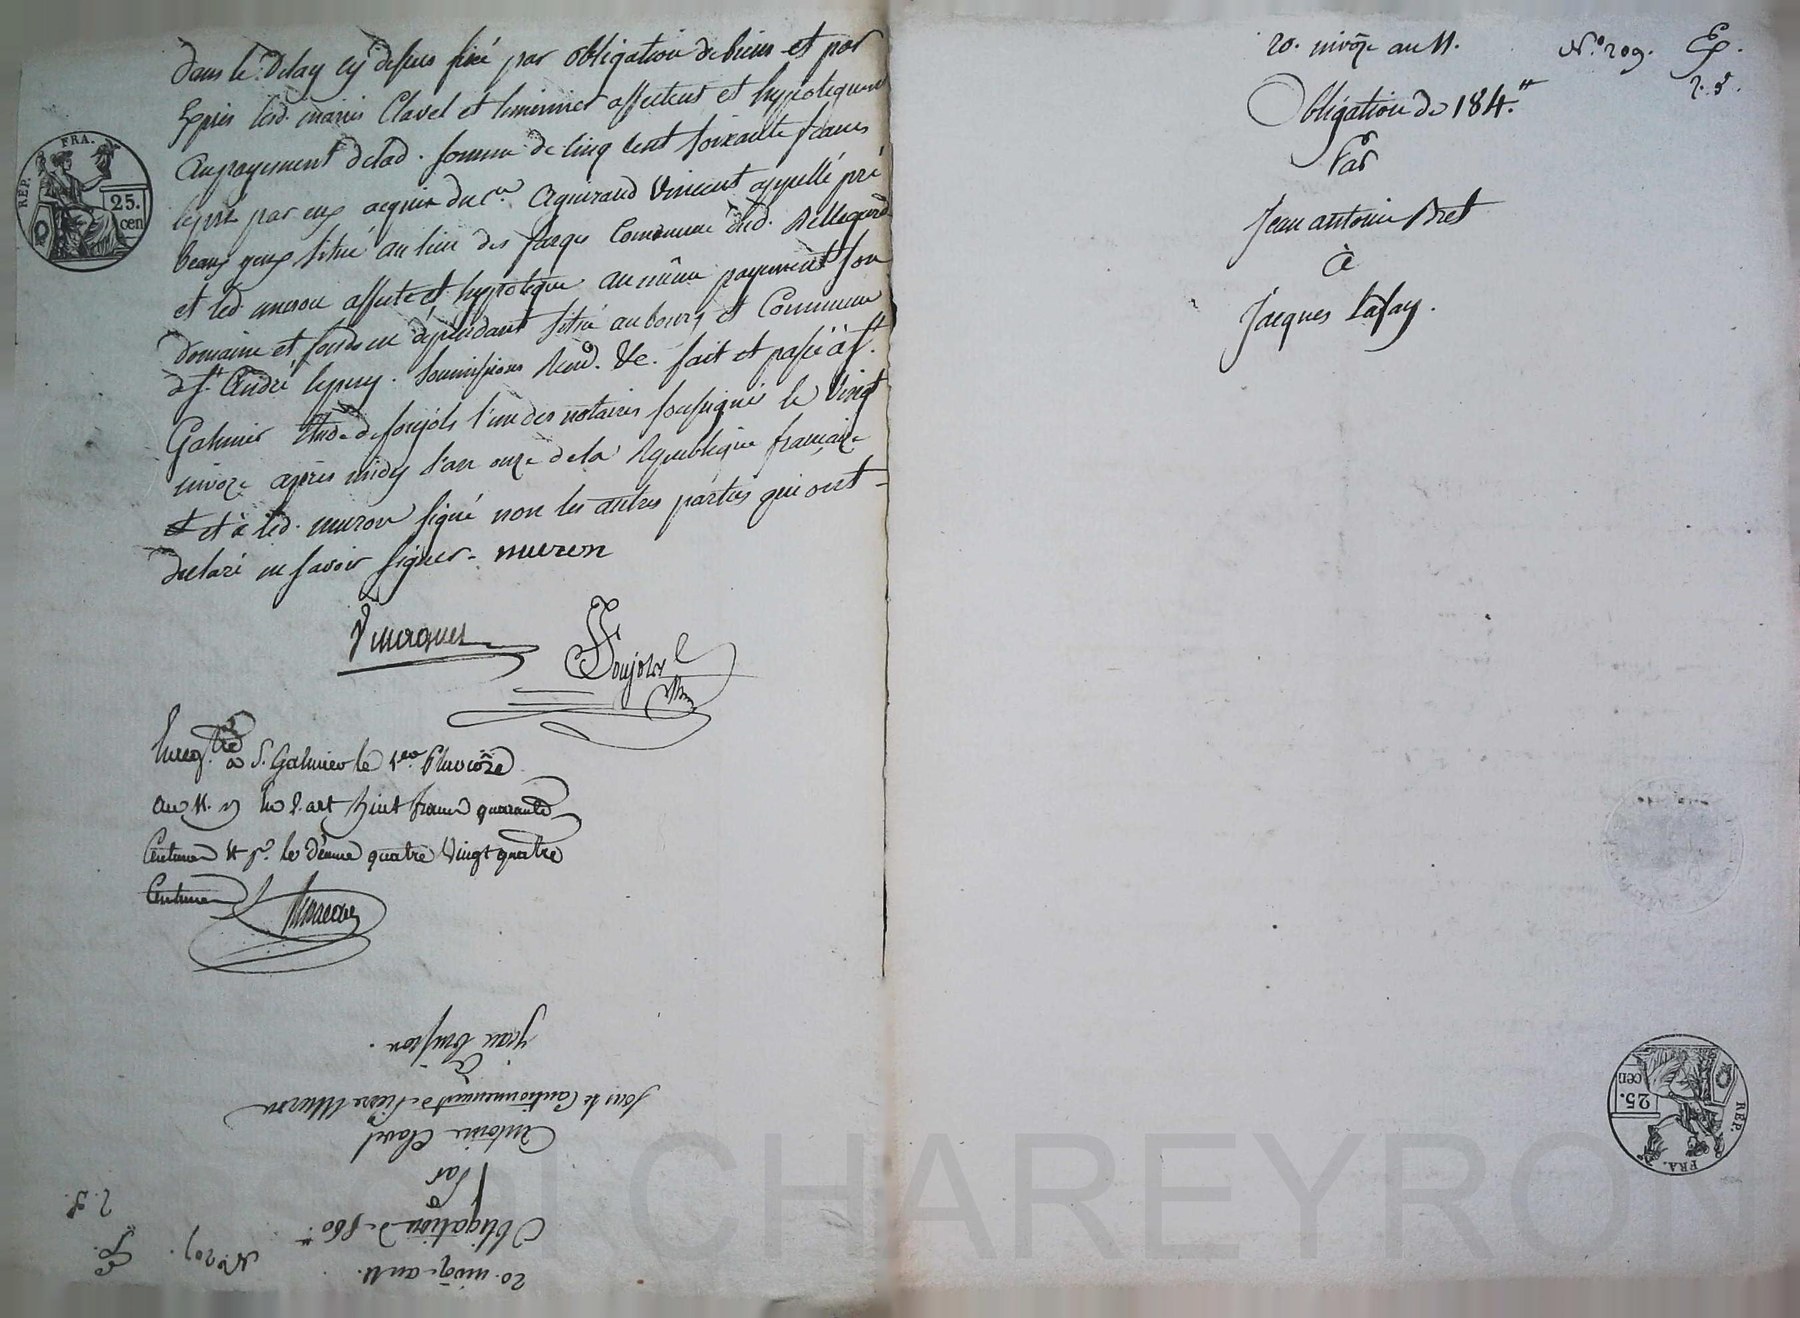 dans le delay cy dessus fixé par obligation de biens et par
Exprès lesd. mariés Clavel et affectent et hypotequent
au payement delad. somme de cinq cent soixante francs
le pré par eux acquis du cn. Vincent appellé pré
beaux yeux situé au lieu des farges Commune dud. Bellegarde
et led. muron affecte et hypoteque au même payement son
domaine et fonds en dépendant situé au bourg et Commune
de St. André lepuy. soumissions Rend. &c. fait et passé à St.
Galmier Etude de soujols l'un des notaires soussignés le vingt
nivoze après midy l'an onze de la République française
et à led. muron signé non les autres parties qui ont
declaré ne savoir signer - muron
Soujols
Enregtré à St. Galmier le 1er Pluviôze
an 11. Reçu huit francs quarante
Centimes et pr. le dixme quatre vingt quatre
Centimes
REP. FRA.
25.
cen
20. nivôze an 11.
N.o 209. Ep.
2. 5.
Obligation de 184.tt
Par
Jean antoine Bret
à
Jacques Lafay.
REP. FRA.
25.
cen
20. nivôze an 11.
Ep.
2. 5.
Obligation de 560tt
Par
Antoine Clavel
sous le Cautionnement de Pierre Muron
à
Jean
CHAREYRON